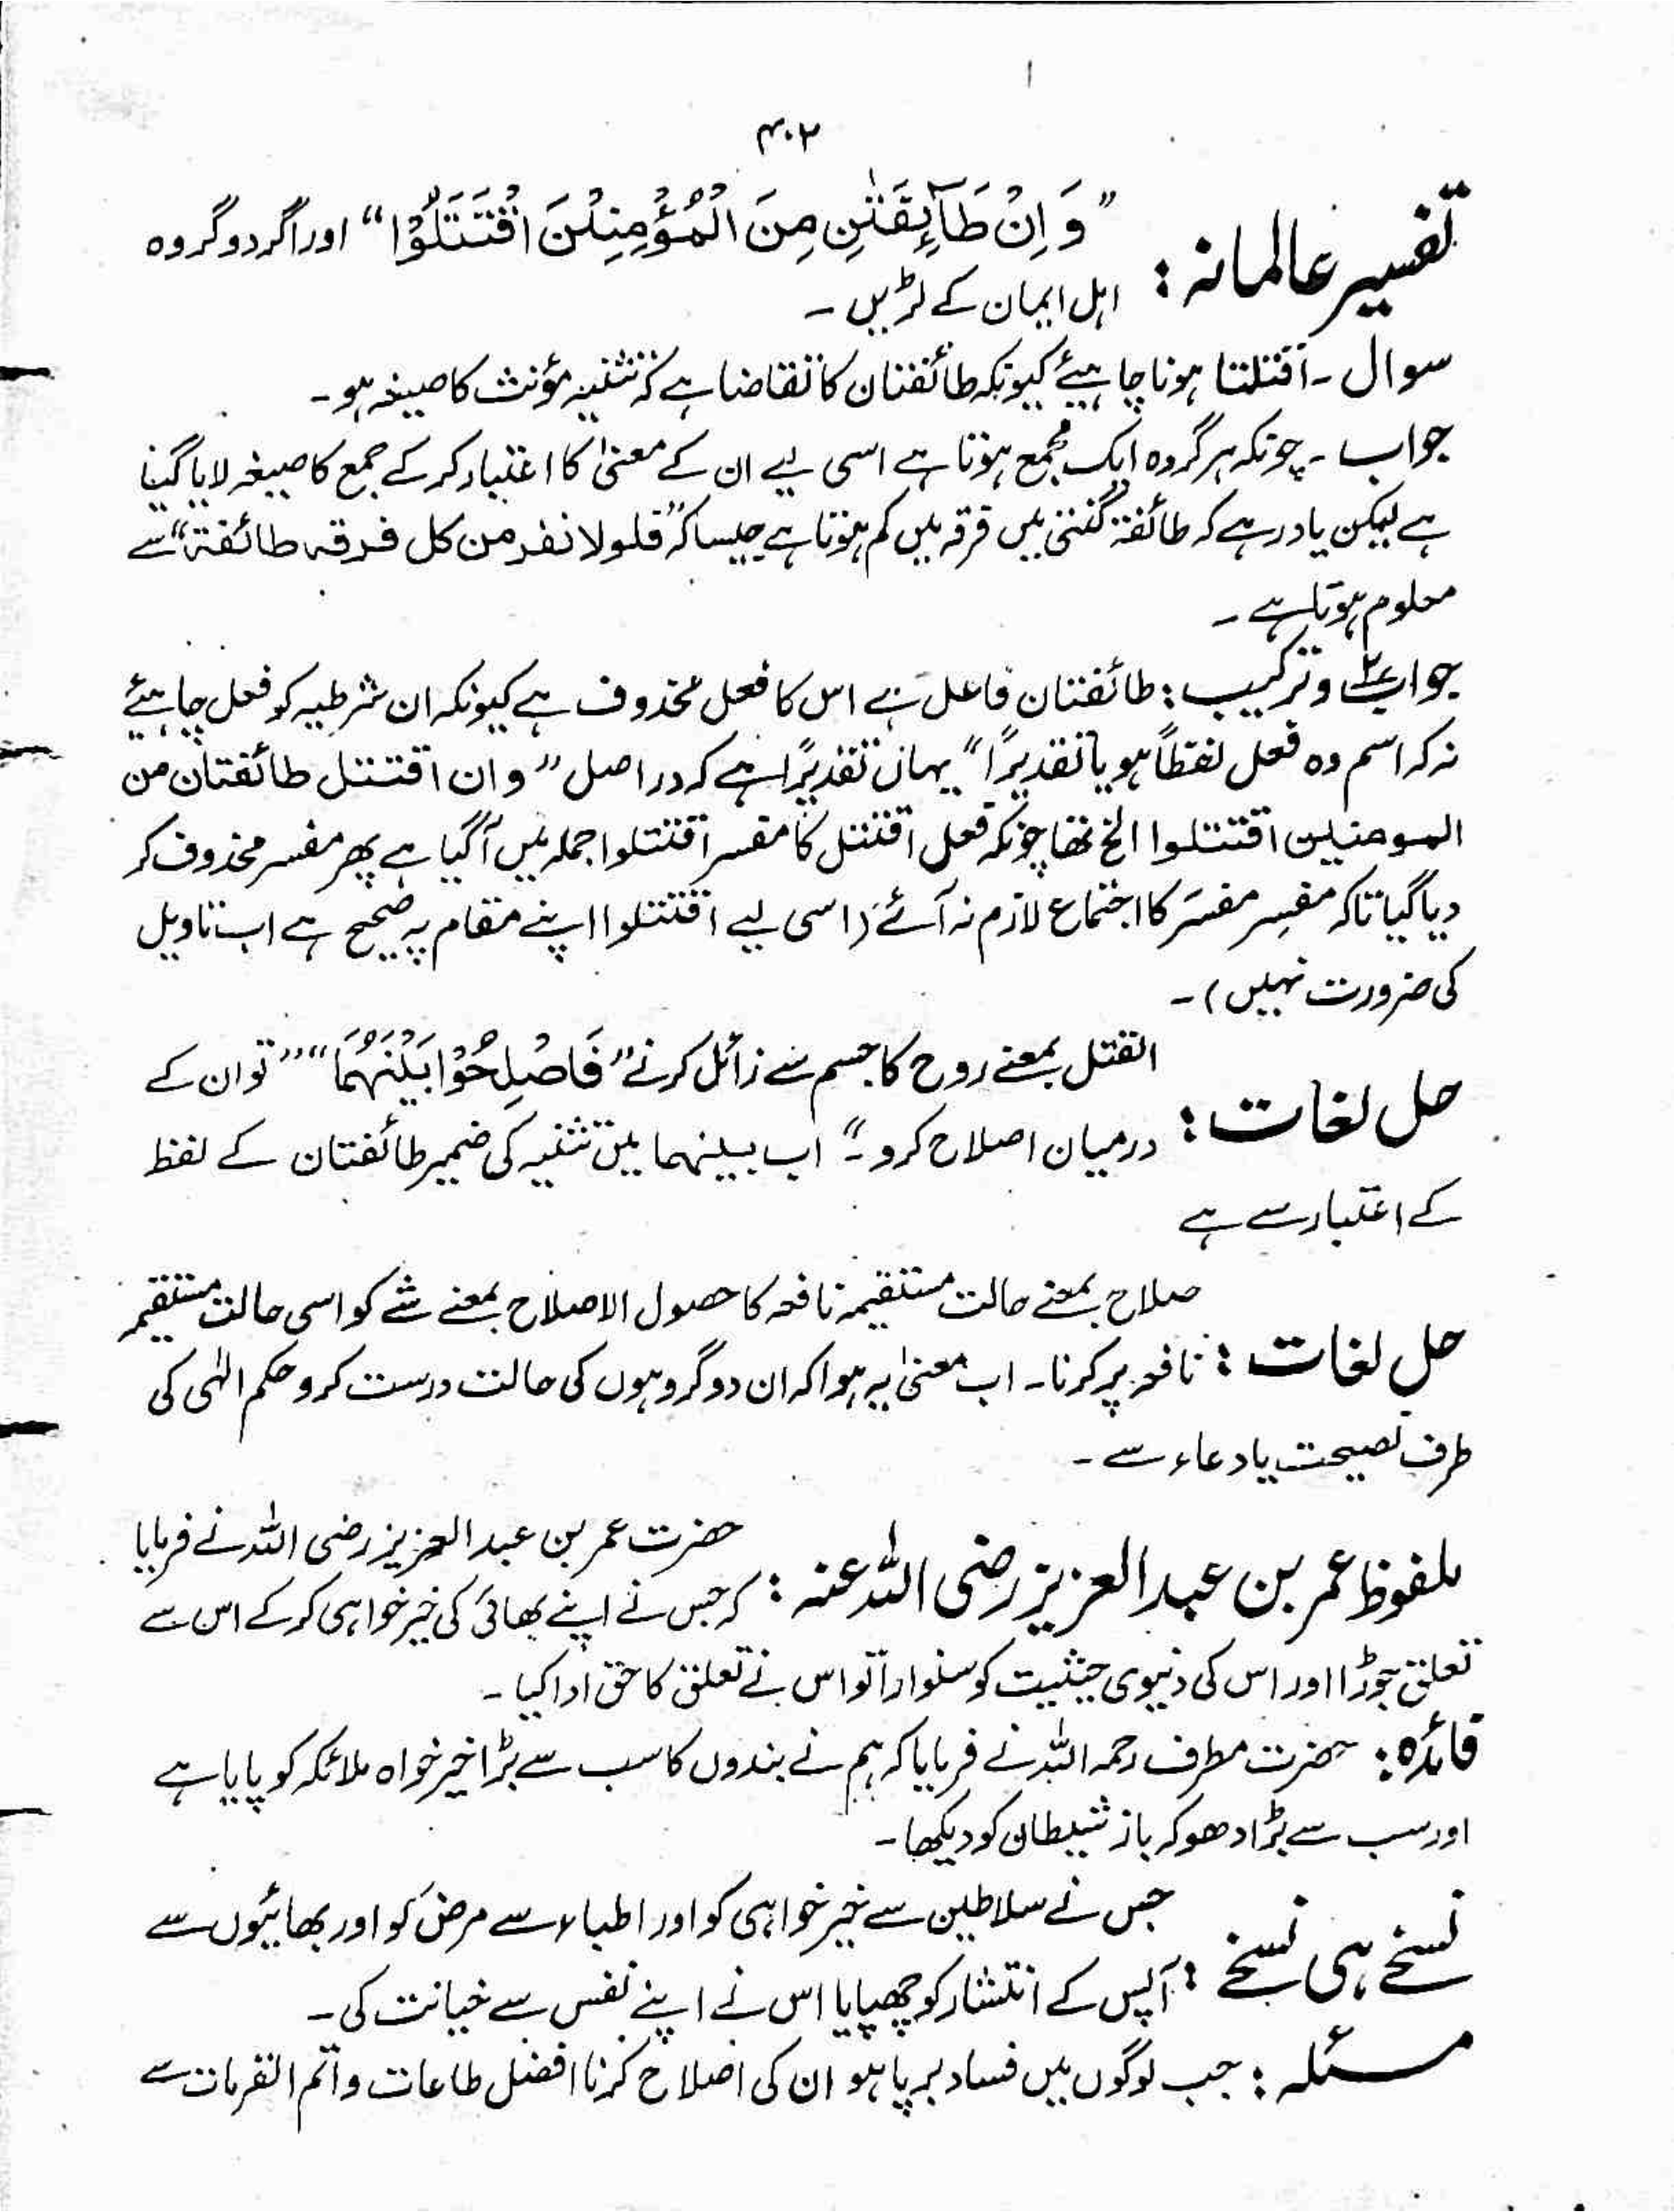 ۴۰۲
تفسیر عالمانہ : ”وَ اِنْ طَآئِفَتٰنِ مِنَ الْمُؤْمِنِیْنَ اقْتَتَلُوْا“ اور اگر دو گروہ
اہل ایمان کے لڑیں ۔
سوال ۔ اقتتلتا ہونا چاہیئے کیونکہ طائفتان کا تقاضا ہے کہ تثنیہ مؤنث کا صیغہ ہو۔
جواب ۔ چونکہ ہر گروہ ایک مجمع ہوتا ہے اسی لیے ان کے معنیٰ کا اعتبار کر کے جمع کا صیغہ لایا گیا
ہے لیکن یاد رہے کہ طائفۃ گنتی میں فرقہ میں کم ہوتا ہے جیسا کہ ”فلولا نفر من کل فرقہ طائفۃ“ سے
معلوم ہوتا ہے ۔
جواب ۲ و ترکیب : طائفتان فاعل ہے اس کا فعل محذوف ہے کیونکہ ان شرطیہ کو فعل چاہیئے
نہ کہ اسم وہ فعل لفظاً ہو یا تقدیرًا “ یہاں تقدیرًا ہے کہ در اصل ” و ان اقتتل طائفتان من
المومنین اقتتلوا الخ تھا چونکہ فعل اقتتل کا مفسر اقتتلوا جملہ میں آگیا ہے پھر مفسر محذوف کر
دیا گیا تاکہ مفسِر مفسَر کا اجتماع لازم نہ آئے (اسی لیے اقتتلوا اپنے مقام پر صحیح ہے اب تاویل
کی ضرورت نہیں) ۔
القتل بمعنے روح کا جسم سے زائل کرنے ” فَاَصْلِحُوْا بَیْنَهُمَا “ ” تو ان کے
حل لغات : درمیان اصلاح کرو ۔“ اب بینہما میں تثنیہ کی ضمیر طائفتان کے لفظ
کے اعتبار سے ہے
صلاح بمعنے حالت مستقیمہ نافعہ کا حصول الاصلاح بمعنے شے کو اسی حالت مستقیمہ
حل لغات : نافعہ پر کرنا ۔ اب معنیٰ یہ ہوا کہ ان دو گروہوں کی حالت درست کرو حکم الٰہی کی
طرف نصیحت یا دعاء سے ۔
حضرت عمر بن عبد العزیز رضی اللہ نے فرمایا
ملفوظ عمر بن عبد العزیز رضی اللہ عنہ : کہ جس نے اپنے بھائی کی خیر خواہی کر کے اس سے
تعلق جوڑا اور اس کی دنیوی حیثیت کو سنوارا تو اس نے تعلق کا حق ادا کیا ۔
فائدہ : حضرت مطرف رحمہ اللہ نے فرمایا کہ ہم نے بندوں کا سب سے بڑا خیر خواہ ملائکہ کو پایا ہے
اور سب سے بڑا دھوکہ باز شیطان کو دیکھا ۔
جس نے سلاطین سے خیر خواہی کو اور اطباء سے مرض کو اور بھائیوں سے
نسخے ہی نسخے : آپس کے انتشار کو چھپایا اس نے اپنے نفس سے خیانت کی ۔
مسئلہ : جب لوگوں میں فساد برپا ہو ان کی اصلاح کرنا افضل طاعات و اتم القربات سے